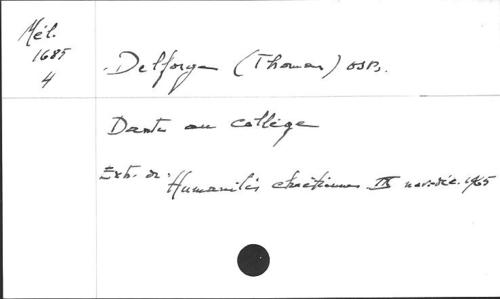 Mél.
1685
4
Delforge (Thomas) OSB.
Dante au collège
Extr. de: Humanités chrétiennes IX nov.-déc. 1965